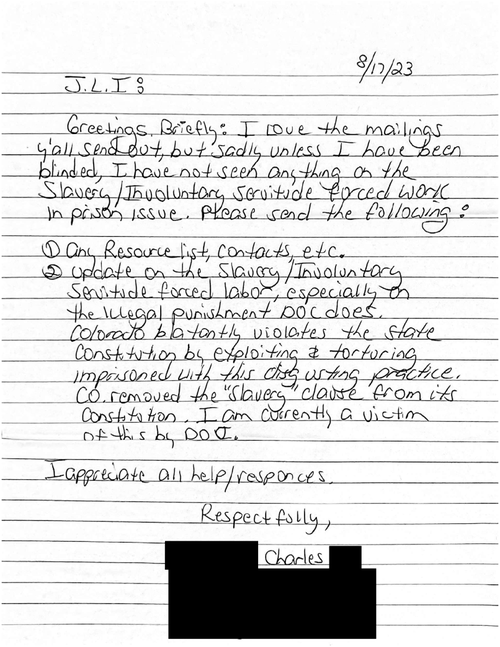 8/17/23
J.L.I:
Greetings. Briefly: I love the mailings
y'all send out, but sadly unless I have been
blinded, I have not seen anything on the
Slavery/Involuntary Servitude forced work
in prison issue. Please send the following:
① Any Resource list, contacts, etc.
② update on the Slavery/Involuntary
Servitude forced labor, especially on
the illegal punishment DOC does.
Colorado blatantly violates the state
Constitution by exploiting & torturing
imprisoned with this disgusting practice.
CO. removed the "Slavery" clause from its
Constitution. I am currently a victim
of this by DOC.
I appreciate all help/responces.
Respectfully,
Charles